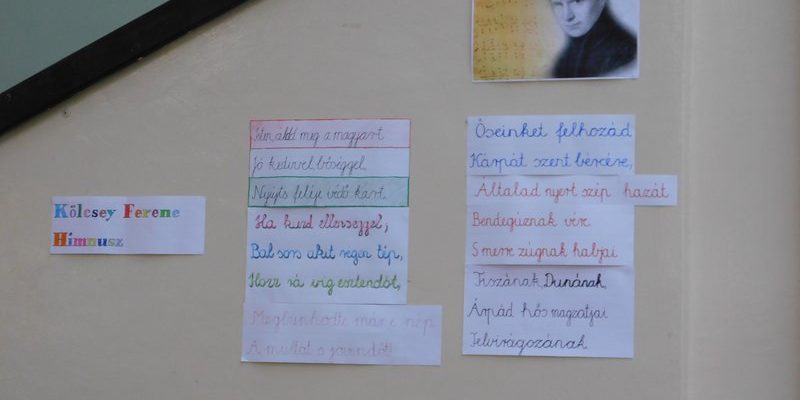 Kölcsey Ferenc
Himnusz
Isten áldd meg a magyart
Jó kedvvel, bőséggel,
Nyújts feléje védő kart,
Ha küzd ellenséggel;
Bal sors akit régen tép,
Hozz rá víg esztendőt,
Megbűnhödte már e nép
A multat s jövendőt!
Őseinket felhozád
Kárpát szent bércére,
Általad nyert szép hazát
Bendegúznak vér
S merre zúgnak habjai
Tiszának, Dunának,
Árpád hős magzatjai
Felvirágozának